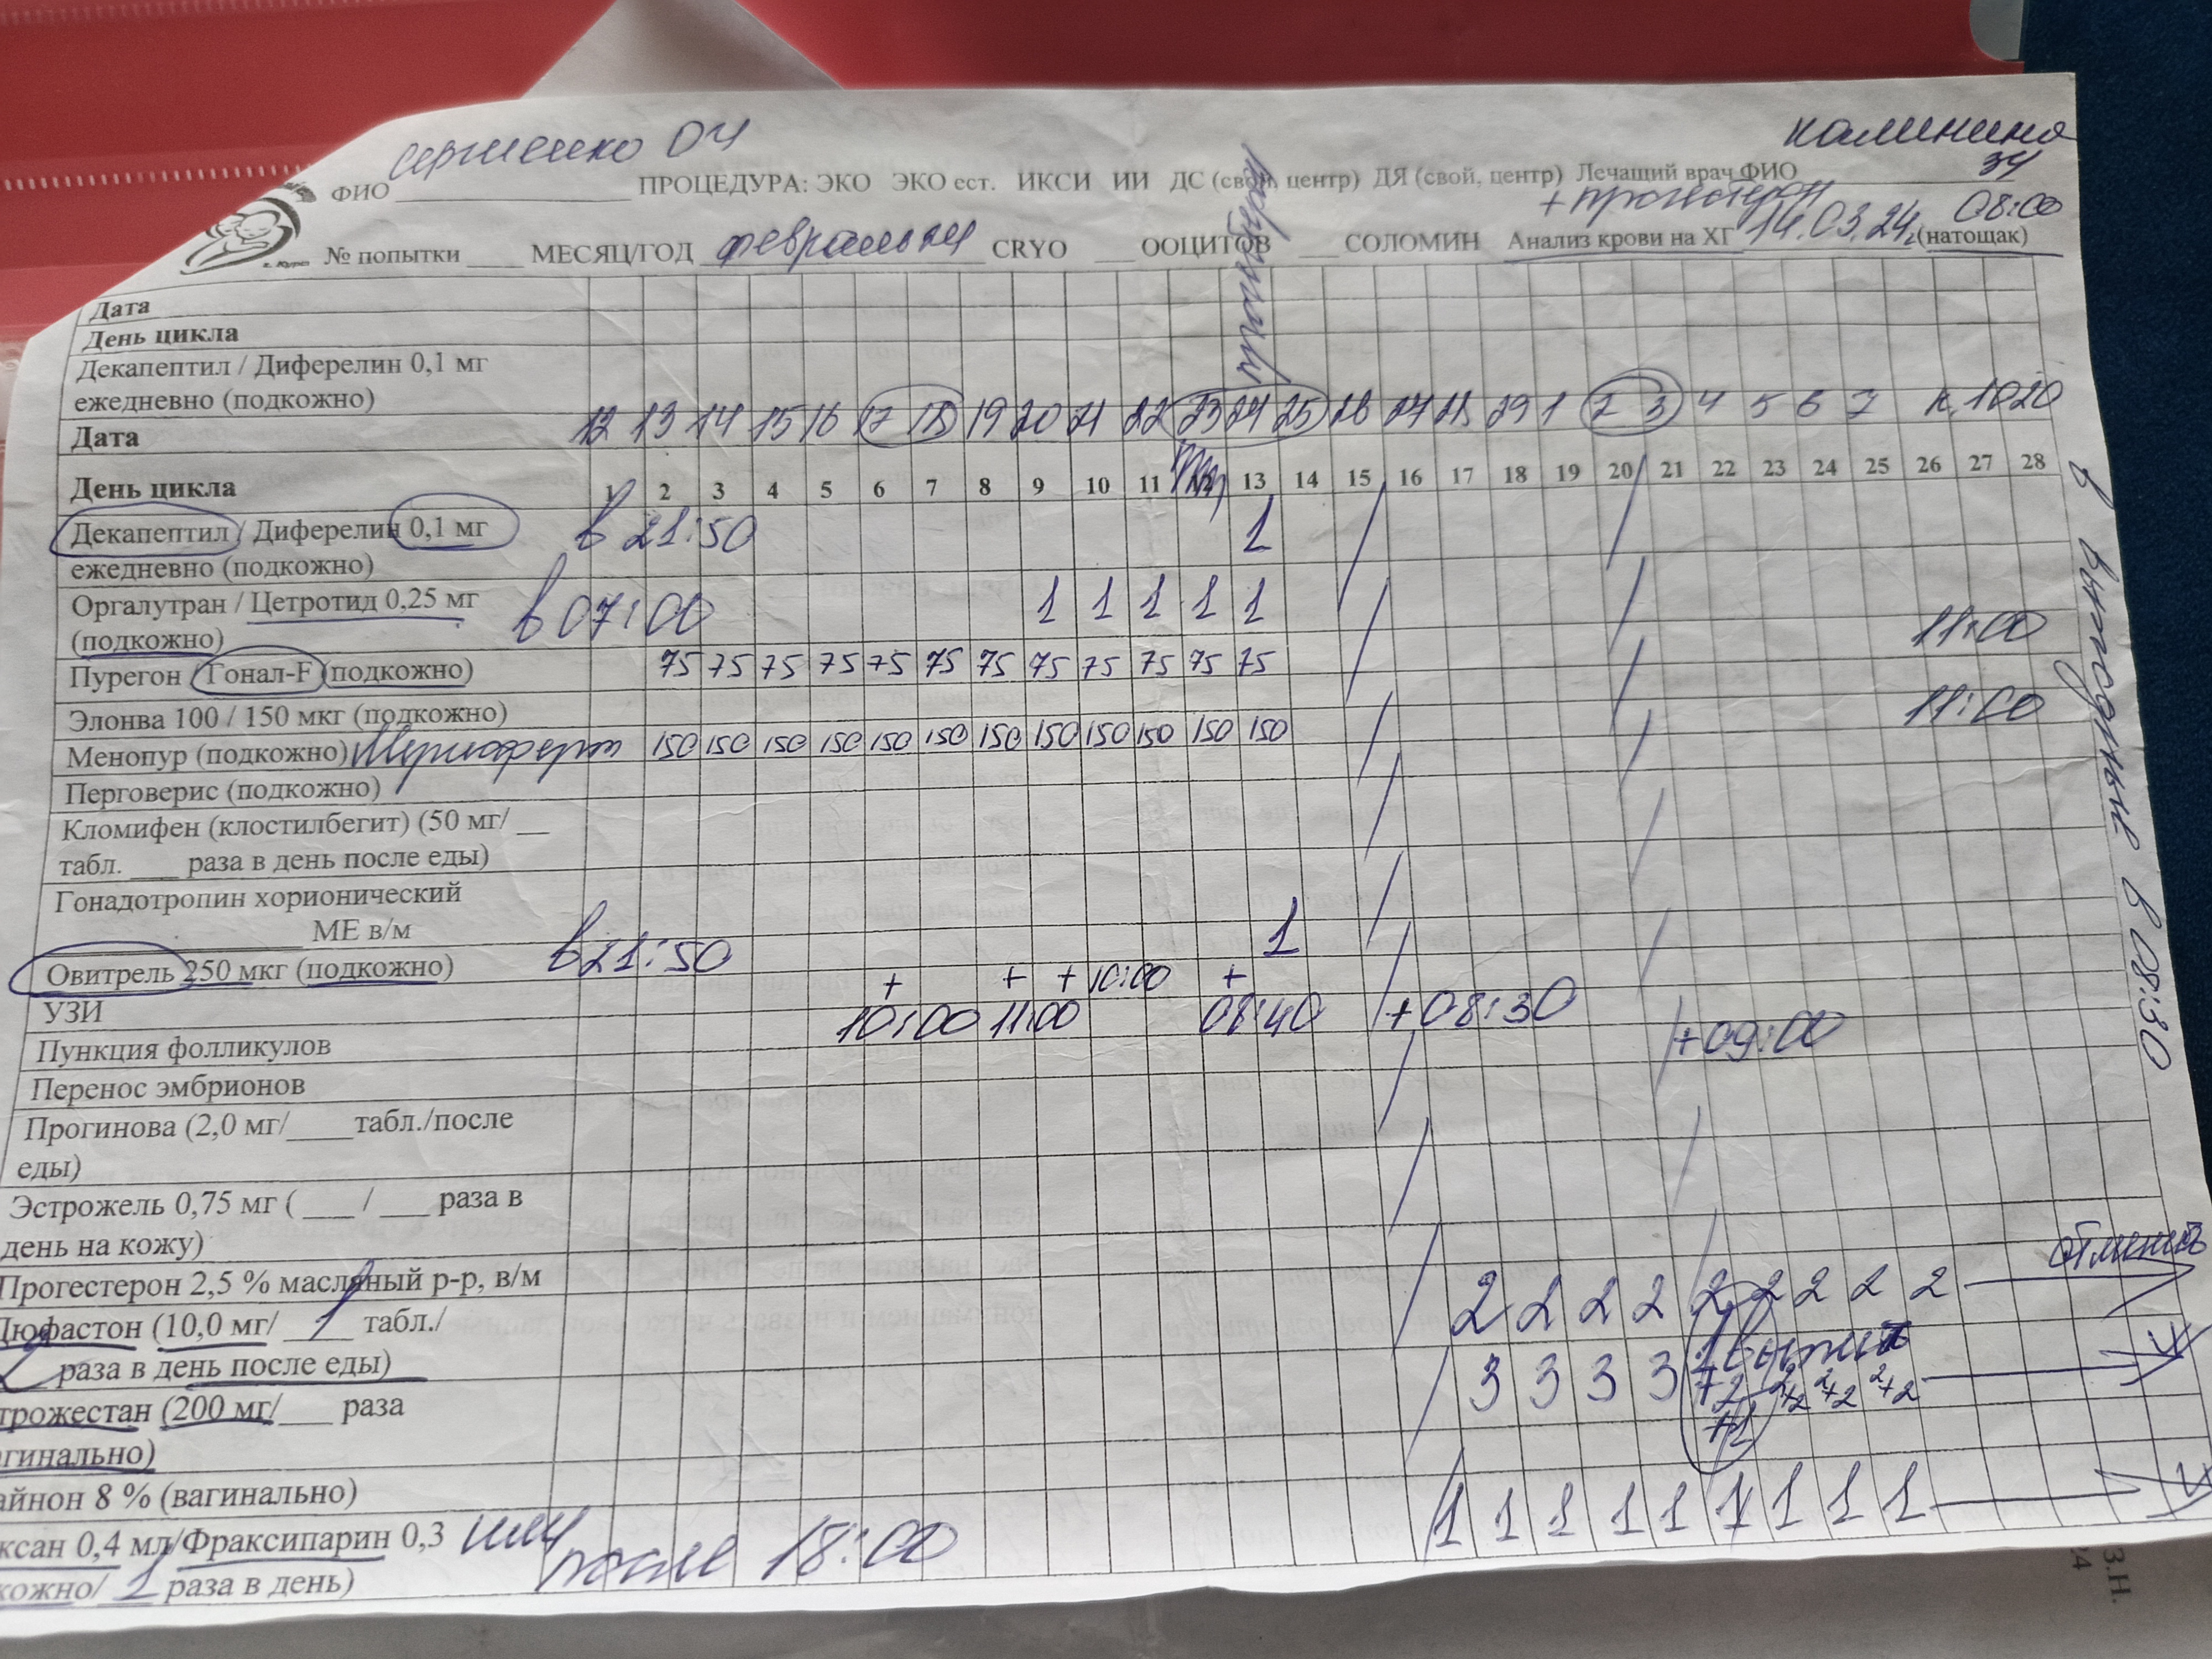 ФИО Сергиенко ОЧ ПРОЦЕДУРА: ЭКО ЭКО ест. ИКСИ ИИ ДС (свой, центр) ДЯ (свой, центр) Лечащий врач ФИО Калинина
+ прогестерон
№ попытки ____ МЕСЯЦ/ГОД февраль 24 CRYO ___ ООЦИТОВ ___ СОЛОМИН Анализ крови на ХГ 14.03.24г. (натощак) 08:00
Дата
День цикла
Декапептил / Диферелин 0,1 мг
ежедневно (подкожно)
Дата 12 13 14 15 16 17 18 19 20 21 22 23 24 25 26 27 28 29 1 2 3 4 5 6 7
День цикла 1 2 3 4 5 6 7 8 9 10 11 13 14 15 16 17 18 19 20 21 22 23 24 25 26 27 28
Декапептил / Диферелин 0,1 мг в 21:50 1
ежедневно (подкожно)
Оргалутран / Цетротид 0,25 мг в 07:00 1 1 1 1 1
(подкожно) 11:00
Пурегон Гонал-F (подкожно) 75 75 75 75 75 75 75 75 75 75 75 75
Элонва 100 / 150 мкг (подкожно) 11:00
Менопур (подкожно) Мериоферт 150 150 150 150 150 150 150 150 150 150 150 150
Перговерис (подкожно)
Кломифен (клостилбегит) (50 мг/ __
табл. ___ раза в день после еды)
Гонадотропин хорионический
МЕ в/м
Овитрель 250 мкг (подкожно) в 21:50 1
УЗИ + 10:00 + 11:00 + 10:00 + 08:40
Пункция фолликулов + 08:30
Перенос эмбрионов + 09:00
Прогинова (2,0 мг/____табл./после
еды)
Эстрожель 0,75 мг ( ___ / ___ раза в
день на кожу)
Прогестерон 2,5 % масляный р-р, в/м
Дюфастон (10,0 мг/ 1 табл./ 2 2 2 2 2 2 2 2 2
2 раза в день после еды)
трожестан (200 мг/___ раза 3 3 3 3
гинально)
айнон 8 % (вагинально)
ксан 0,4 мл/Фраксипарин 0,3 после 18:00 1 1 1 1 1 1 1 1 1
кожно/ 1 раза в день)
в 08:30
З.Н.
24